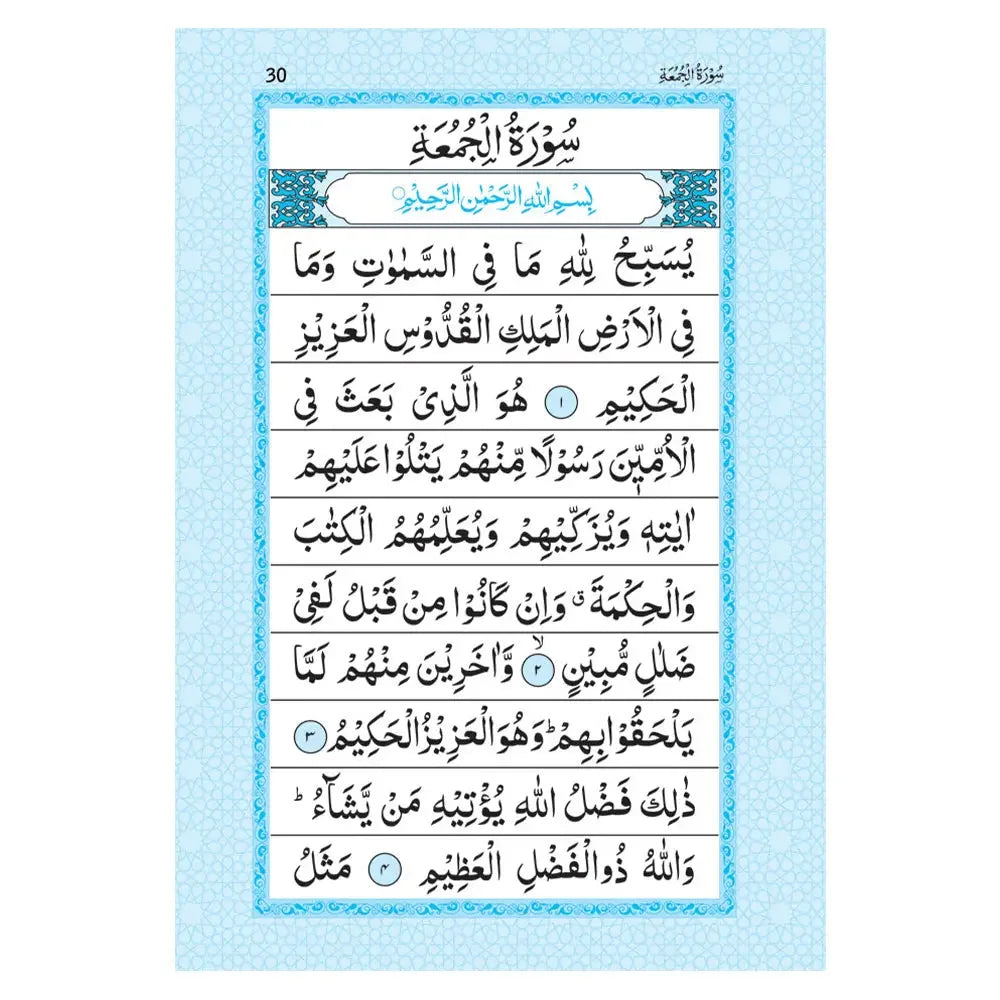 30
سُوْرَةُ الْجُمُعَةِ
سُوْرَةُ الْجُمُعَةِ
بِسْمِ اللهِ الرَّحْمٰنِ الرَّحِيْمِ○
يُسَبِّحُ لِلّٰهِ مَا فِي السَّمٰوٰتِ وَمَا
فِي الْاَرْضِ الْمَلِكِ الْقُدُّوْسِ الْعَزِيْزِ
الْحَكِيْمِ ۱ هُوَ الَّذِيْ بَعَثَ فِي
الْاُمِّيّٖنَ رَسُوْلًا مِّنْهُمْ يَتْلُوْا عَلَيْهِمْ
اٰيٰتِهٖ وَيُزَكِّيْهِمْ وَيُعَلِّمُهُمُ الْكِتٰبَ
وَالْحِكْمَةَ ۗ وَاِنْ كَانُوْا مِنْ قَبْلُ لَفِيْ
ضَلٰلٍ مُّبِيْنٍ ۙ ۲ وَّاٰخَرِيْنَ مِنْهُمْ لَمَّا
يَلْحَقُوْا بِهِمْ ؕ وَهُوَ الْعَزِيْزُ الْحَكِيْمُ ۳
ذٰلِكَ فَضْلُ اللهِ يُؤْتِيْهِ مَنْ يَّشَآءُ ؕ
وَاللهُ ذُو الْفَضْلِ الْعَظِيْمِ ۴ مَثَلُ